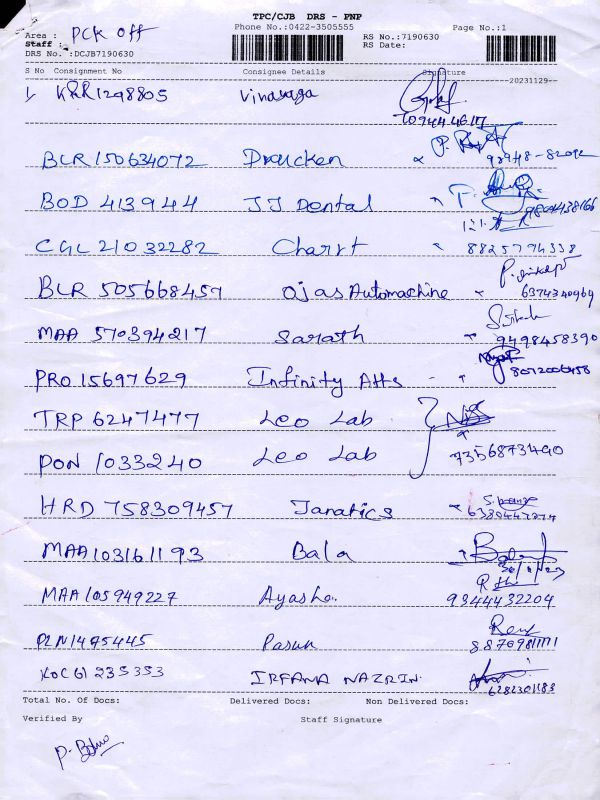 TPC/CJB DRS - PNP
Phone No.:0422-3505555
Page No.:1
Area : PCK Off
Staff :
DRS No.:DCJB7190630
RS No.:7190630
RS Date:
S No Consignment No Consignee Details Signature
--20231129--
1, KRR1298805 Vinayaga
BLR 150634072 Drucken
BOD 413944 JJ Dental
CGL 21032282 Chart 8825794338
BLR 505668457 Ojas Automachine 6374340969
MAA 570394217 Sarath 9498458390
PRO 15697629 Infinity Atts 8072006458
TRP 6247477 Leo Lab
PON 1033240 Leo Lab 7356873490
HRD 758309457 Janatics
MAA103161193 Bala
MAA 105949227 Ayasha 9344432204
PLN1495445 8870981111
KOC61235353 IRFANA NAZRIN 6282301183
Total No. Of Docs: Delivered Docs: Non Delivered Docs:
Verified By Staff Signature